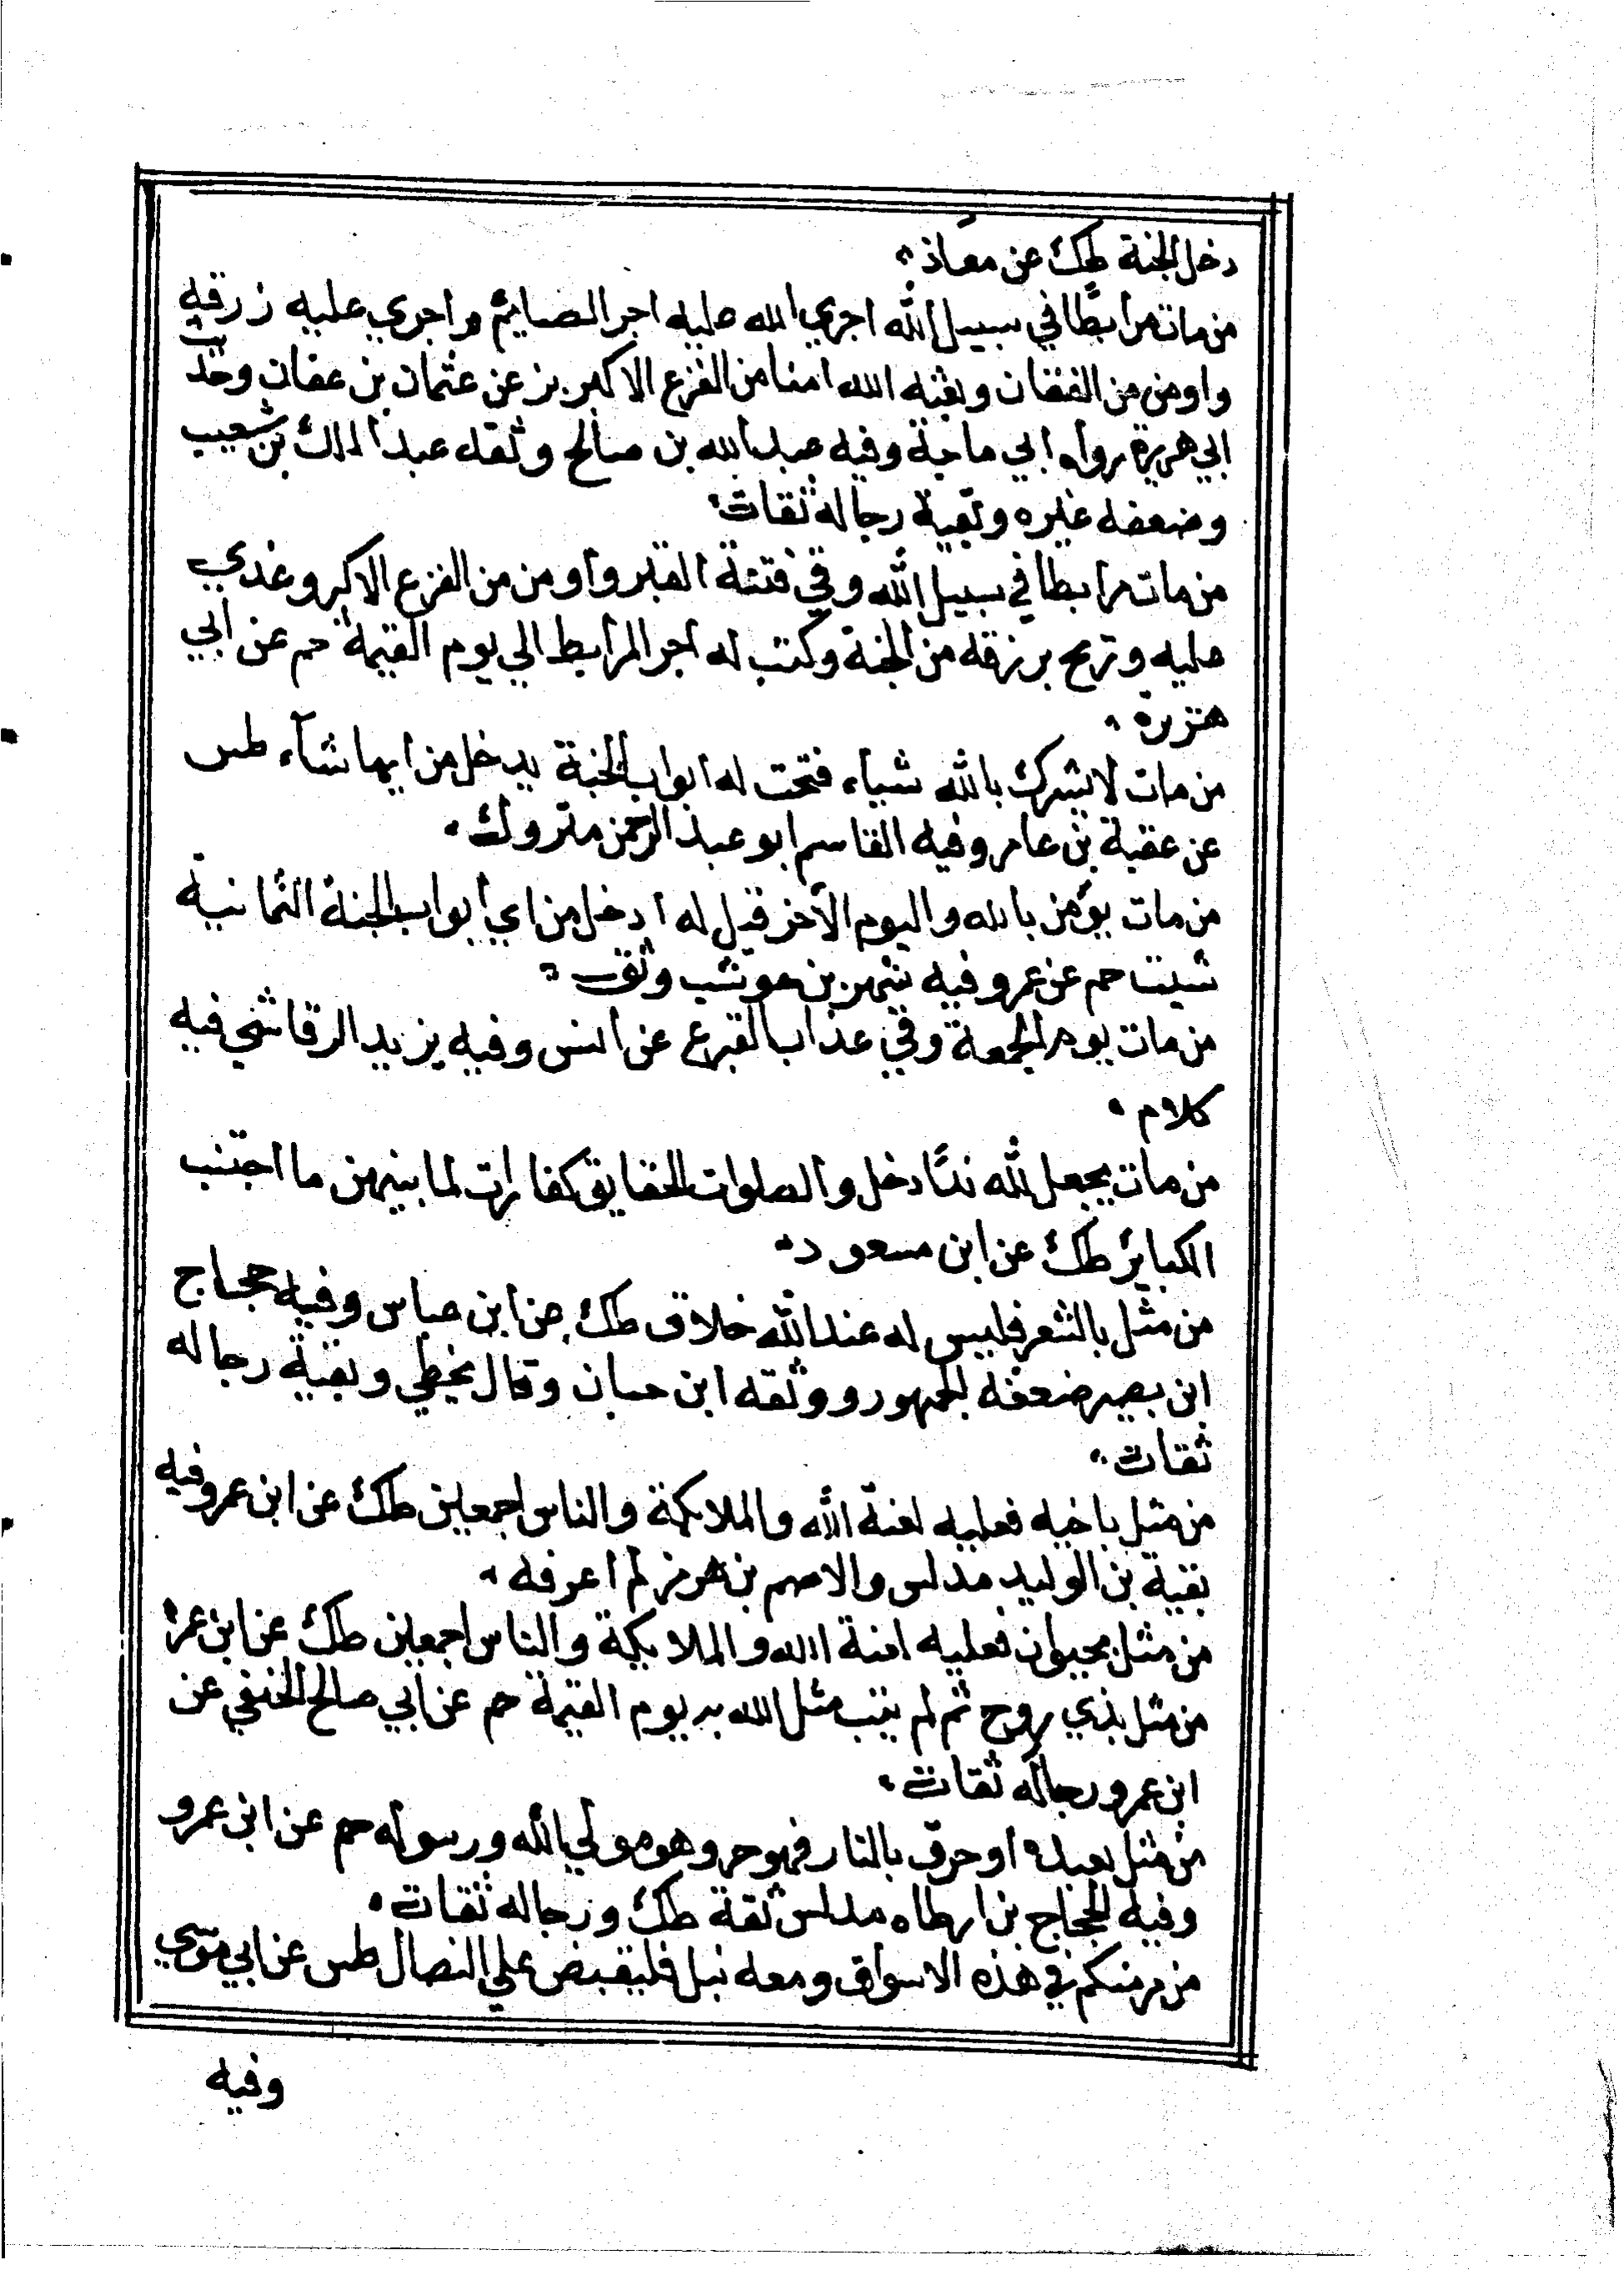 دخل الجنة طك عن معاذ
من مات مرابطا في سبيل الله اجري الله عليه اجر الصايم واجري عليه زرقه
واومن من الفتان وبعثه الله امنا من الفزع الاكبر بز عن عثمان بن عفان وحديث
ابي هريرة رواه ابي ماجة وفيه عبد الله بن صالح وثقه عبد الملك بن شعيب
وضعفه غيره وبقية رجاله ثقات
من مات مرابطا في سبيل الله وقي فتنة القبر واومن من الفزع الاكبر وغدي
عليه وتريح برزقه من الجنة وكتب له اجر المرابط الي يوم القيمة حم عن ابي
هريرة
من مات لا يشرك بالله شياء فتحت له ابواب الجنة يدخل من ايها شآء طس
عن عقبة بن عامر وفيه القاسم ابو عبد الرحمن متروك
من مات يؤمن بالله واليوم الآخر قيل له ادخل من اي ابواب الجنة الثمانية
شيت حم عن عمر وفيه شهر بن حوشب وثق
من مات يوم الجمعة وقي عذاب القبر ع عن انس وفيه يزيد الرقاشي فيه
كلام
من مات يجعل لله ندا دخل والصلوات الحقايق كفارات لما بينهن ما اجتنب
الكباير طك عن ابن مسعود
من مثل بالشعر فليس له عند الله خلاق طك عن ابن عباس وفيه حجاج
ابن بصير ضعفه الجمهور ووثقه ابن حبان وقال يخطي وبقية رجاله
ثقات
من مثل باخيه فعليه لعنة الله والملايكة والناس اجمعين طك عن ابن عمر وفيه
بقية بن الوليد مدلس والاصم بن هرمز لم اعرفه
من مثل بحيوان فعليه لعنة الله والملايكة والناس اجمعين طك عن ابن عمر
من مثل بذي روح ثم لم يتب مثل الله به يوم القيمة حم عن ابي صالح الحنفي عن
ابن عمر ورجاله ثقات
من مثل بعبده او حرق بالنار فهو حر وهو مولي الله ورسوله حم عن ابن عمرو
وفيه الحجاج بن ارطاه مدلس ثقة طك ورجاله ثقات
من مر منكم في هذه الاسواق ومعه نبل فليقبض علي النصال طس عن ابي موسي
وفيه